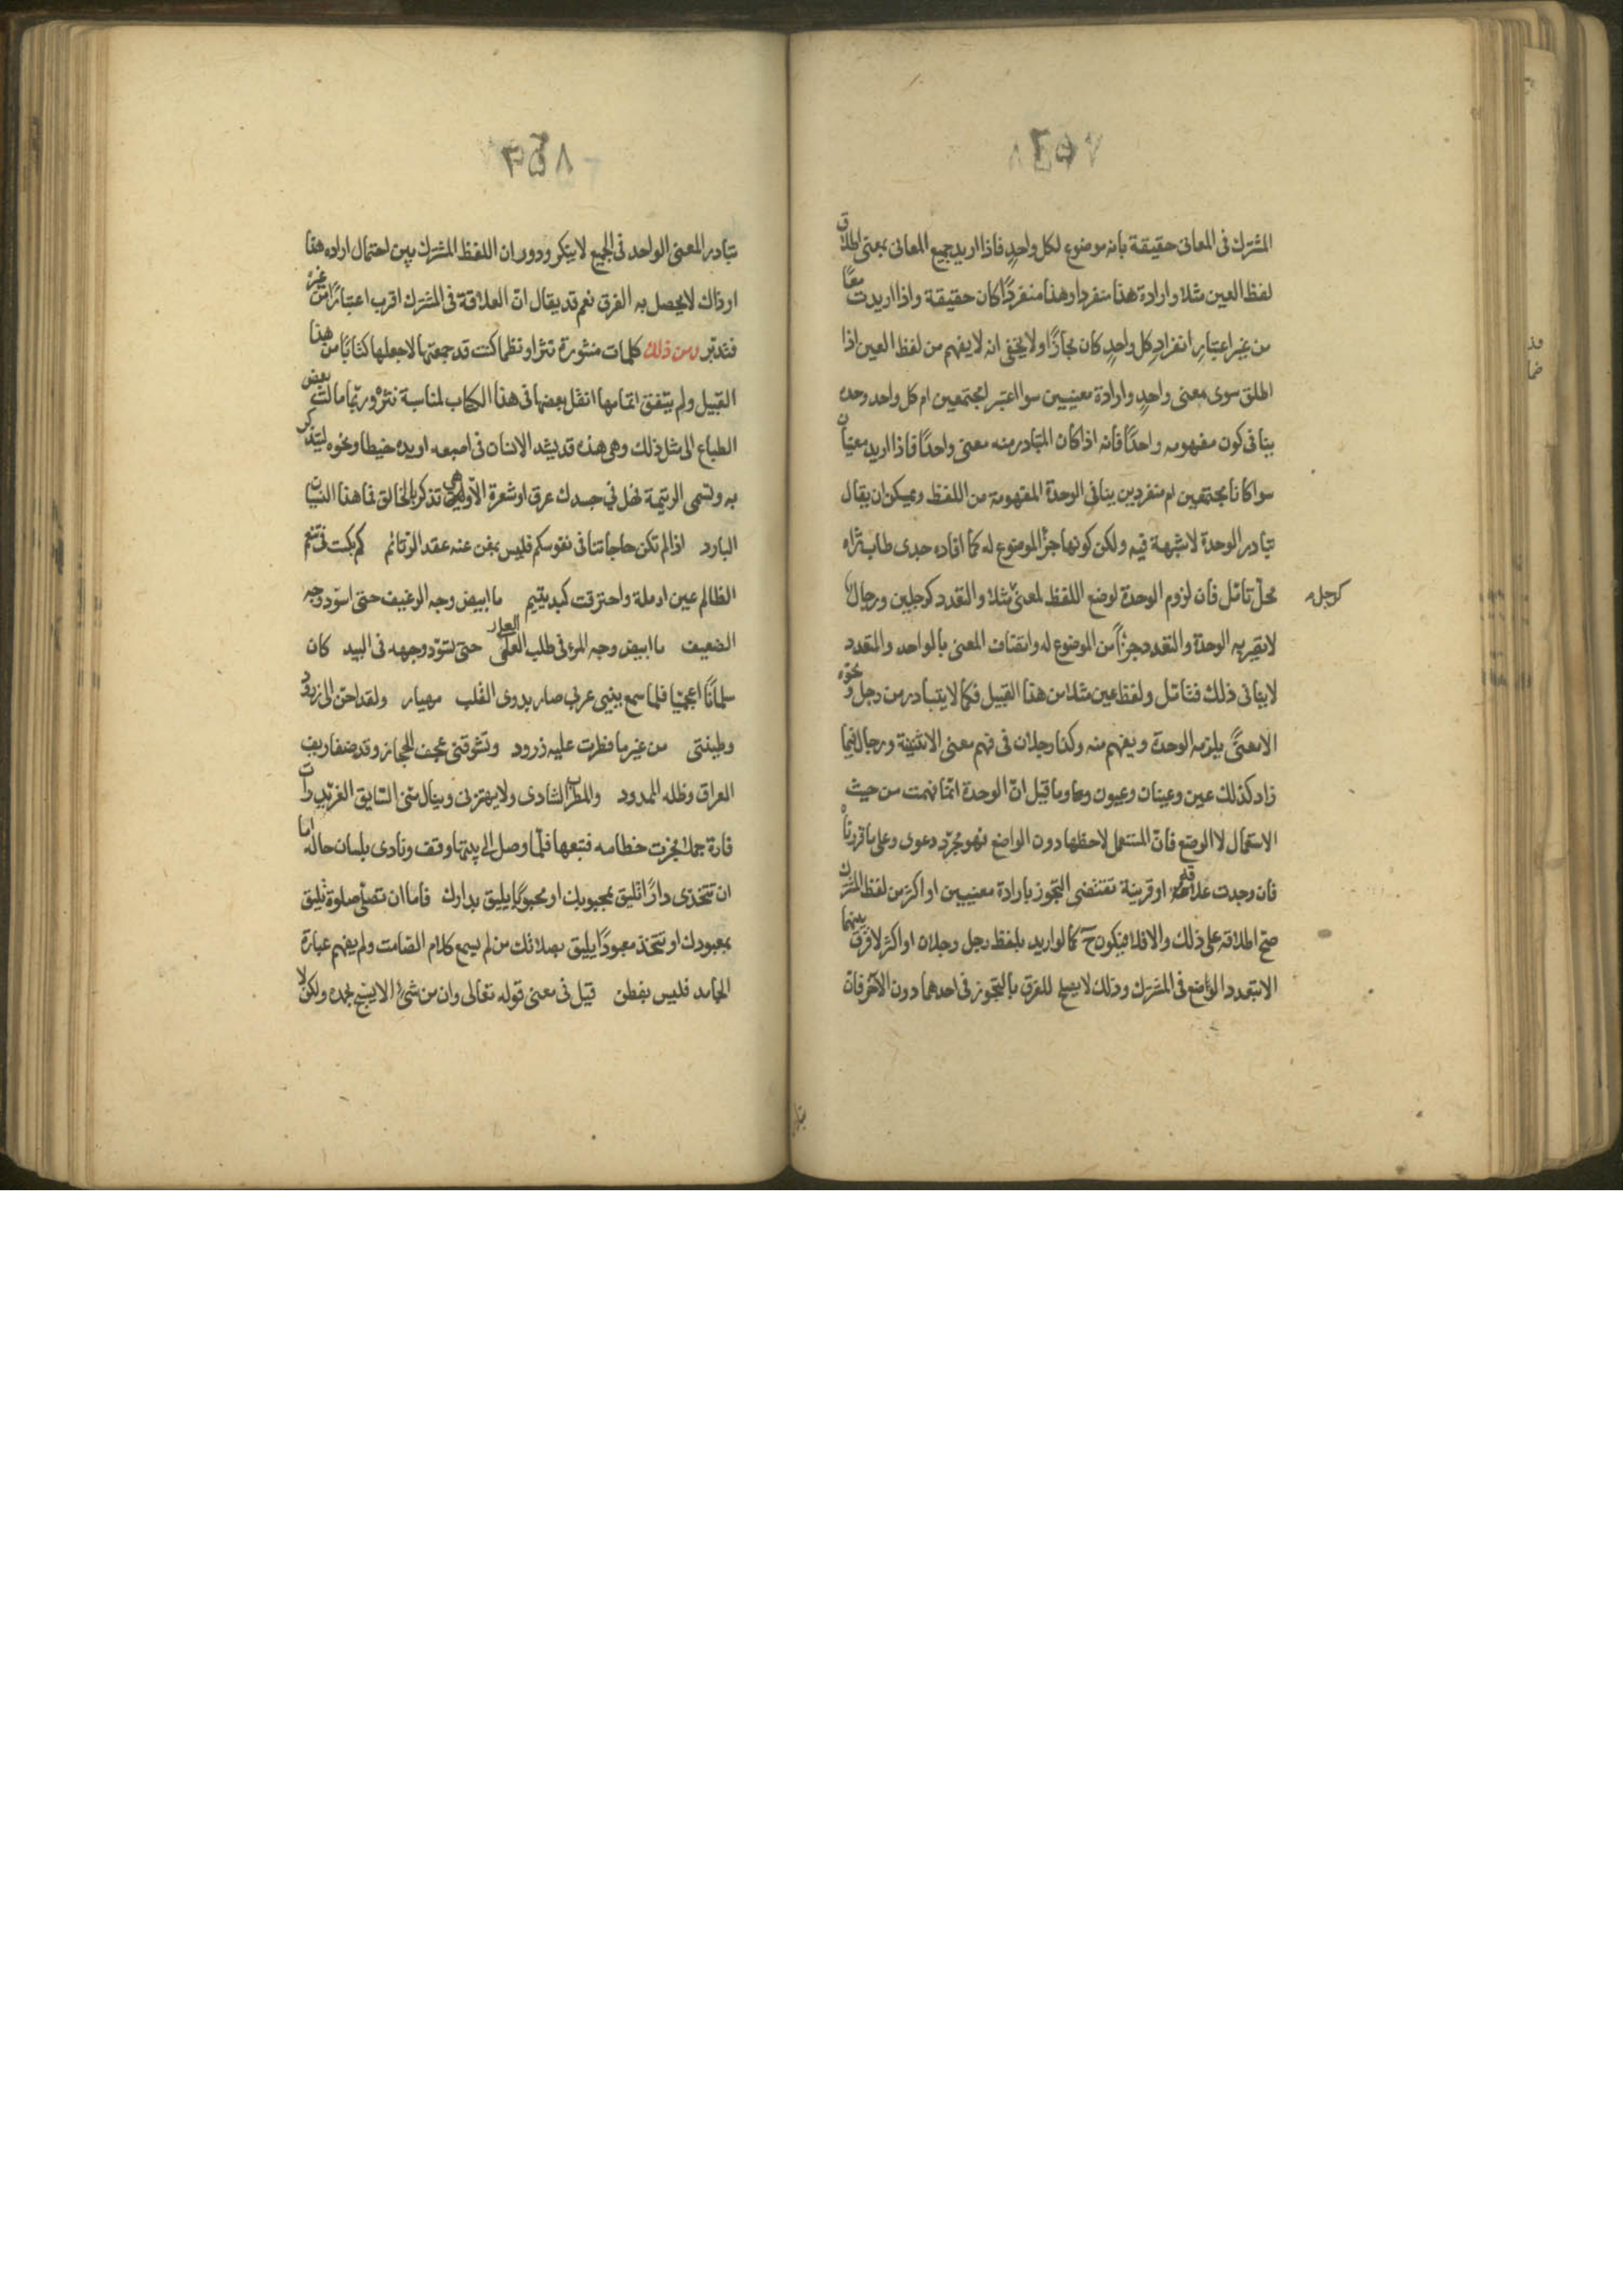 ٢٥٧
المشترك فى المعانى حقيقة بانه موضوع لكل واحدٍ فاذا اريد جميع المعانى بمعنى اطلاق
لفظ العين مثلا وارادة هذا منفردا وهذا منفردًا كان حقيقة واذا اريدت معًا
من غير اعتبارِ انفرادِ كل واحدٍ كان مجازًا ولا يخفى انه لا يفهم من لفظ العين اذا
اطلق سوى معنى واحدٍ وارادة معنيين سوا اعتبر المجتمعين ام كل واحد وحده
ينافى كون مفهومه واحدًا فانه اذا كان المتبادر منه معنى واحدًا فاذا اريد معنيان
سوا كانا مجتمعين ام منفردين ينافى الوحدة المفهومة من اللفظ ويمكن ان يقال
تبادر الوحدة لا شبهة فيه ولكن كونها جزأ الموضوع له كما افاده جدى طاب ثراه
محل تامّل فان لزوم الوحدة لوضع اللفظ لمعنىً مثلا والتعدد كرجلين ورجال
كرجل
لا يصير به الوحدة والتعدد جزأً من الموضوع له واتصاف المعنى بالواحد والمتعدد
لا ينافى ذلك فتامّل ولفظ عين مثلا من هذا القبيل فكما لا يتبادر من رجل ونحوه
الا معنىً يلزمه الوحدة ويفهم منه وكذا رجلان فى فهم معنى الاثنينية ورجال فيما
زاد كذلك عين وعينان وعيون وما قيل انّ الوحدة انّما فهمت من حيث
الاستعمال لا الوضع فانّ المستعمل لاحظها دون الواضع فهو مجرّد دعوى وعلى ما قررناه
فان وجدت علاقة اوقرينة تقتضى التجوز بارادة معنيين او اكثر من لفظ المشترك
صح اطلاقه على ذلك والا فلا فيكون ح كما لو اريد بلفظ رجل رجلان او اكثر لا فرق بينهما
الا بتعدد الواضع فى المشترك وذلك لا يصلح للفرق بالتجوز فى احدهما دون الآخر فانّ
٢٥٨
تبادر المعنى الواحد فى الجميع لا ينكر ودوران اللفظ المشترك بين احتمال اراده هذا
او ذاك لا يحصل به الفرق نعم قد يقال انّ العلاقة فى المشترك اقرب اعتبارًا من غيره
فتدبّر ومن ذلك كلمات منثورة نثرا ونظما كنت قد جمعتها لاجعلها كتابًا من هذا
القبيل ولم يتفق اتمامها انقل بعضها فى هذا الكتاب لمناسبة نثره وربّما مالت بعض
الطباع الى مثل ذلك وهى هذه قد يشد الانسان فى اصبعه او يده خيطا ونحوه ليتذكر
به وتسمى الرتيمة فهل فى جسدك عرق او شعرة الا وهى تذكر بالخالق فما هذا النسيان
البارد اذا لم تكن حاجاتنا فى نفوسكم فليس بمغن عنه عقد الرتائم كم بكت فى تنعّم
الظالم عين ارملة واحترقت كبد يتيم ما ابيض وجه الرغيف حتى اسوّد وجه
الضعيف ما ابيض وجه المرء فى طلب العلى حتى تسوّد وجهه فى البيد كان
سلمانًا اعجميّا فلما سمع بنبى عربى صار بدوى القلب مهيار ولقد احن الى زرود
وطينتى من غير ما فطرت عليه زرود وتشوقنى عجف الحجاز وقد ضفا ريف
العراق وظله الممدود والمطرب الشادى ولا يهتزنى وينال منى السايق الغريد رات
فارة جملا فجرت خطامه فتبعها فلمّا وصل الى بيتها وقف ونادى بلسان حاله اما
ان تتخذى دارًا تليق بمحبوبك او محبوبًا يليق بدارك فاما ان تصلّى صلوة تليق
بمعبودك او تتخذ معبودًا يليق بصلاتك من لم يسمع كلام الصامت ولم يفهم عبارة
الجامد فليس بفطن قيل فى معنى قوله تعالى وان من شئ الا يسبح بحمده ولكن لا